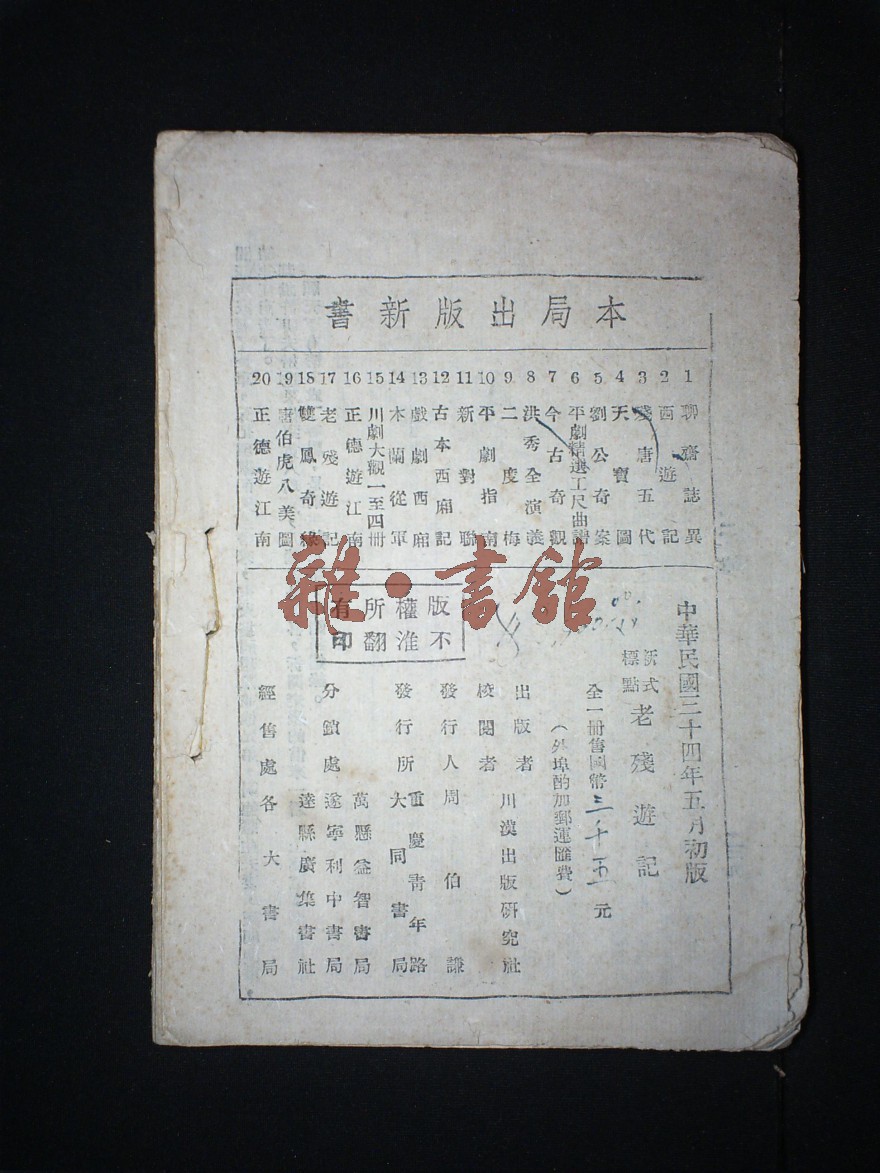 本局出版新書
1 聊齋誌異
2 西遊記
3 殘唐五代
4 天寶圖
5 劉公奇案
6 平劇精選工尺曲譜
7 今古奇觀
8 洪秀全演義
9 二度梅
10 平劇指南
11 新對聯
12 古本西廂記
13 戲劇西廂
14 木蘭從軍
15 川劇大觀一至四冊
16 正德遊江南
17 老殘遊記
18 雙鳳奇緣
19 唐伯虎八美圖
20 正德遊江南
中華民國三十四年五月初版
新式標點 老殘遊記
全一冊售國幣三千五元
（外埠酌加郵運匯費）
出版者 川漢出版研究社
校閱者
發行人 周伯謙
發行所 重慶青年路 大同書局
分銷處 萬縣益智書局
遂寧利中書局
達縣廣集書社
經售處 各大書局
版權所有
不准翻印
雜·書館